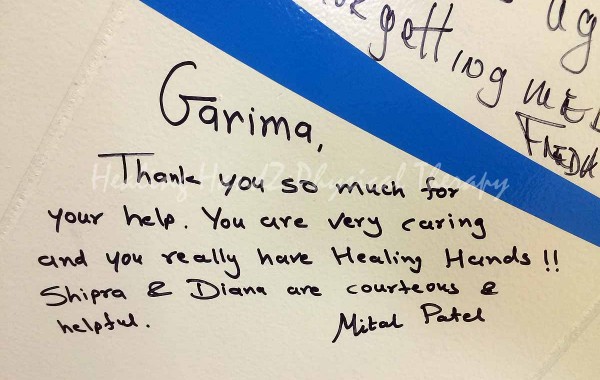 ug
getting ME
FREDA
Garima,
Thank you so much for
your help. You are very caring
and you really have Healing Hands !!
Shipra & Diana are courteous &
helpful.
Mital Patel
Healing HandZ Physical Therapy